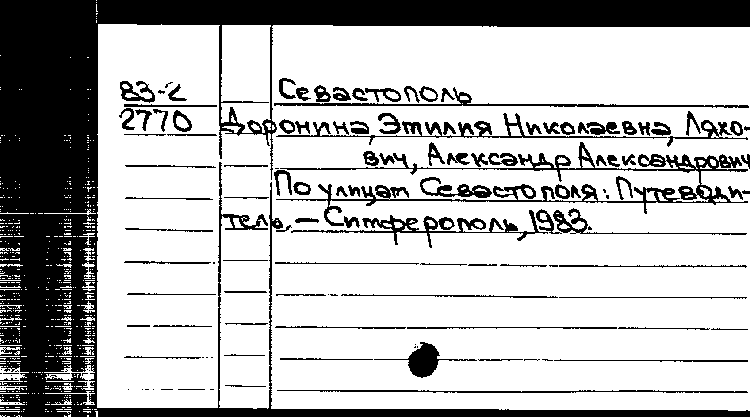 83-2 Севастополь
2770 Доронина, Этилия Николаевна, Ляхо-
вич, Александр Александрович
По улицам Севастополя: Путеводи-
тель. — Симферополь, 1983.